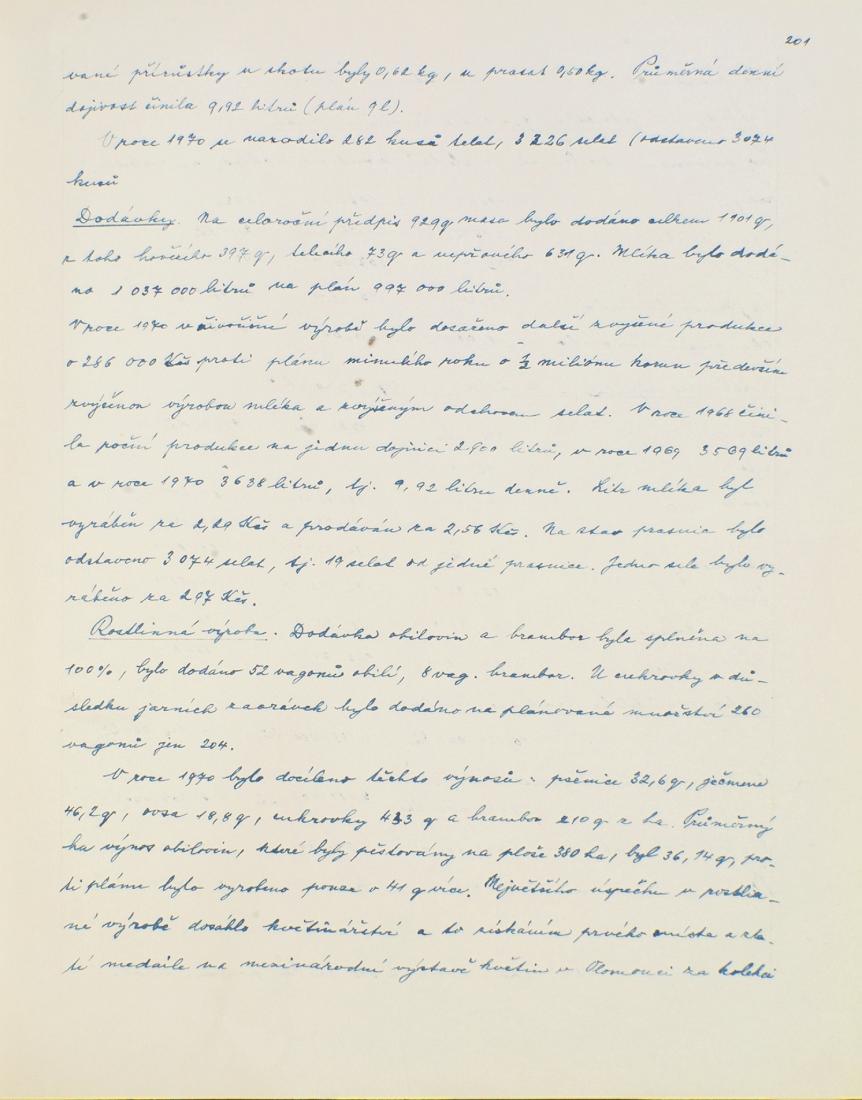 201
vané přírůstky u skotu byly 0,62 kg, u prasat 0,50 kg. Průměrná denní
dojivost činila 9,92 litrů (plán 9 l).
V roce 1970 se narodilo 282 kusů telat, 3 226 selat (odstaveno 3074
kusů
Dodávky. Na celoroční předpis 929 q masa bylo dodáno celkem 1101 q,
z toho hovězího 397 q, telecího 73 q a vepřového 631 q. Mléka bylo dodá-
no 1 037 000 litrů na plán 997 000 litrů.
V roce 1970 v živočišné výrobě bylo dosaženo další zvýšené produkce
o 286 000 Kčs proti plánu minulého roku o ½ miliónu korun především
zvýšenou výrobou mléka a zvýšeným odchovem selat. V roce 1968 čini-
la roční produkce na jednu dojnici 2900 litrů, v roce 1969 3569 litrů
a v roce 1970 3638 litrů, tj. 9,92 litru denně. Litr mléka byl
vyráběn za 2,29 Kčs a prodáván za 2,56 Kčs. Na stav prasnic bylo
odstaveno 3 074 selat, tj. 19 selat od jedné prasnice. Jedno sele bylo vy-
ráběno za 297 Kčs.
Rostlinná výroba. Dodávka obilovin a brambor byla splněna na
100%, bylo dodáno 52 vagonů obilí, 8 vag. brambor. U cukrovky v dů-
sledku jarních zaorávek bylo dodáno na plánované množství 260
vagonů jen 204.
V roce 1970 bylo docíleno těchto výnosů: pšenice 32,6 q, ječmene
46,2 q, ovsa 18,8 q, cukrovky 433 q a brambor 210 q z ha. Průměrný
ha výnos obilovin, které byly pěstovány na ploše 380 ha, byl 36,14 q, pro-
ti plánu bylo vyrobeno pouze o 41 q více. Největšího úspěchu v rostlin-
né výrobě dosáhlo květinářství a to získáním prvého místa a zla-
té medaile na mezinárodní výstavě květin v Olomouci za kolekci